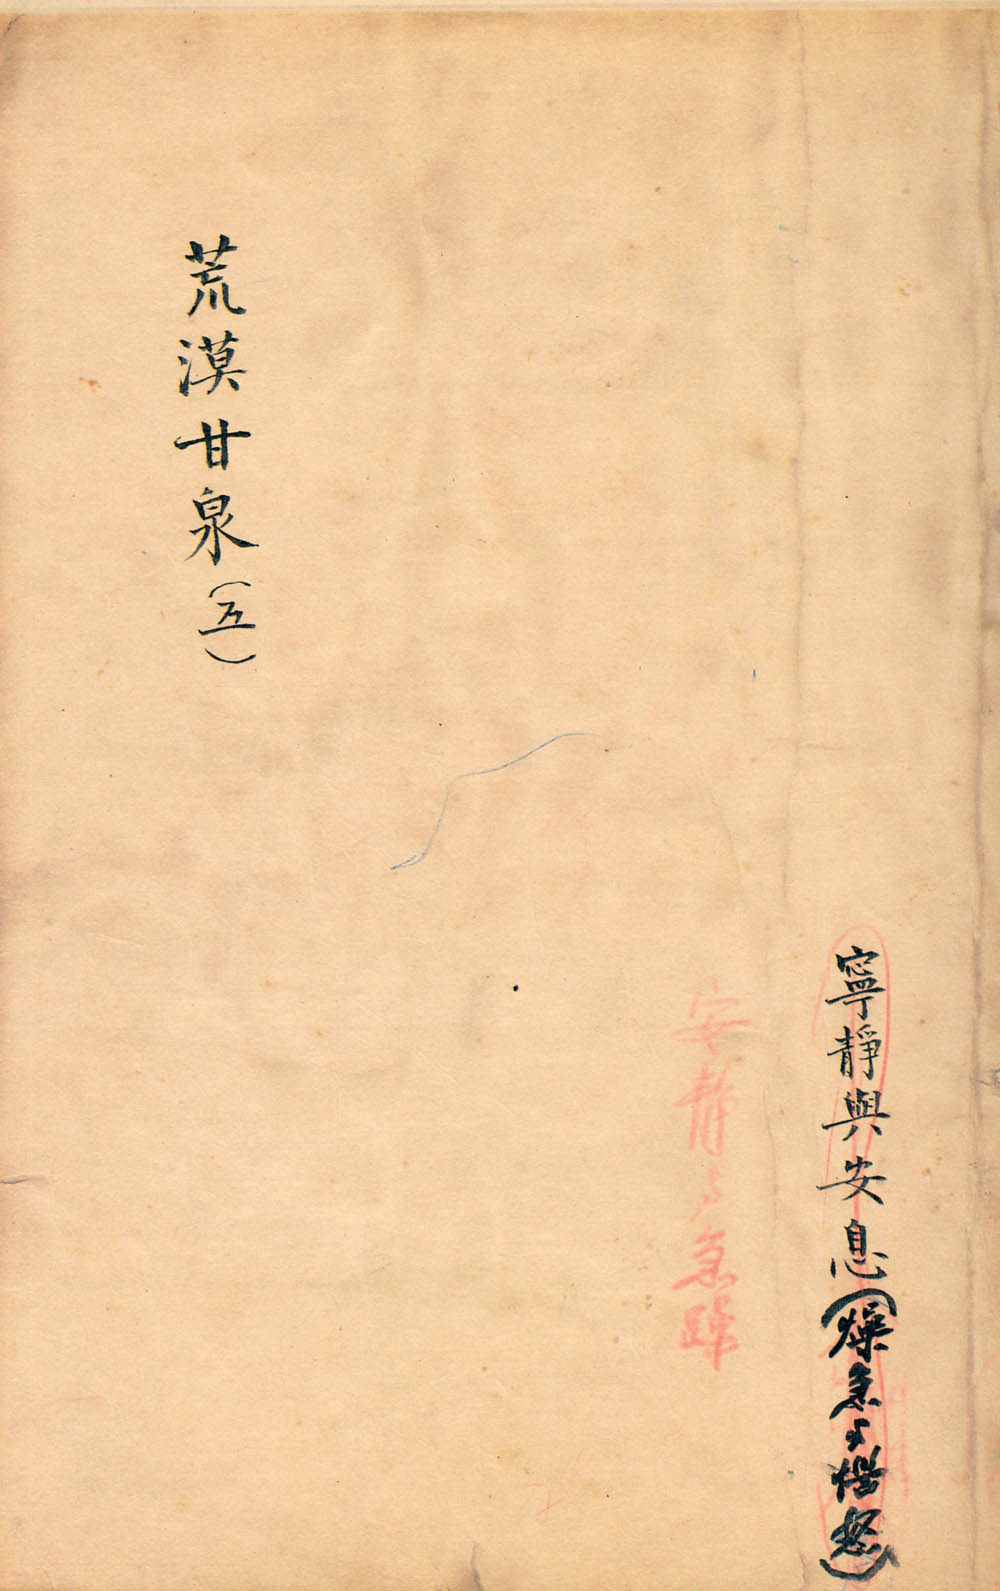 寧靜與安息(燥急与怒)
安静与急躁
荒漠甘泉(五)